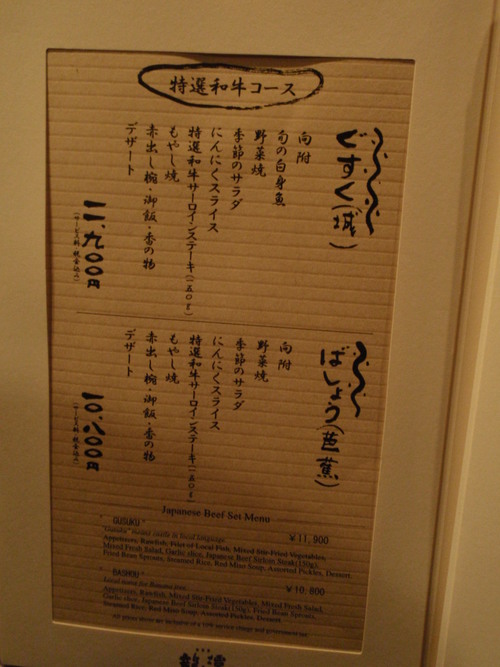 特選和牛コース
ぐすく(城)
向附
旬の白身魚
野菜焼
季節のサラダ
にんにくスライス
特選和牛サーロインステーキ(一五〇g)
もやし焼
赤出し椀・御飯・香の物
デザート
一一、九〇〇円
(サービス料・税金込み)
ばしょう(芭蕉)
向附
野菜焼
季節のサラダ
にんにくスライス
特選和牛サーロインステーキ(一五〇g)
もやし焼
赤出し椀・御飯・香の物
デザート
一〇、八〇〇円
(サービス料・税金込み)
Japanese Beef Set Menu
" GUSUKU " ￥11, 900
"Gusuku" means castle in local language.
Appetizers, Rawfish, Filet of Local Fish, Mixed Stir-Fried Vegetables,
Mixed Fresh Salad, Garlic slice, Japanese Beef Sirloin Steak(150g),
Fried Bean Sprouts, Steamed Rice, Red Miso Soup, Assorted Pickles, Dessert
" BASHOU " ￥10, 800
Local name for Banana tree.
Appetizers, Rawfish, Mixed Stir-Fried Vegetables, Mixed Fresh Salad,
Garlic slice, Japanese Beef Sirloin Steak(150g), Fried Bean Sprouts,
Steamed Rice, Red Miso Soup, Assorted Pickles, Dessert
*All prices above are inclusive of a 10% service charge and government tax